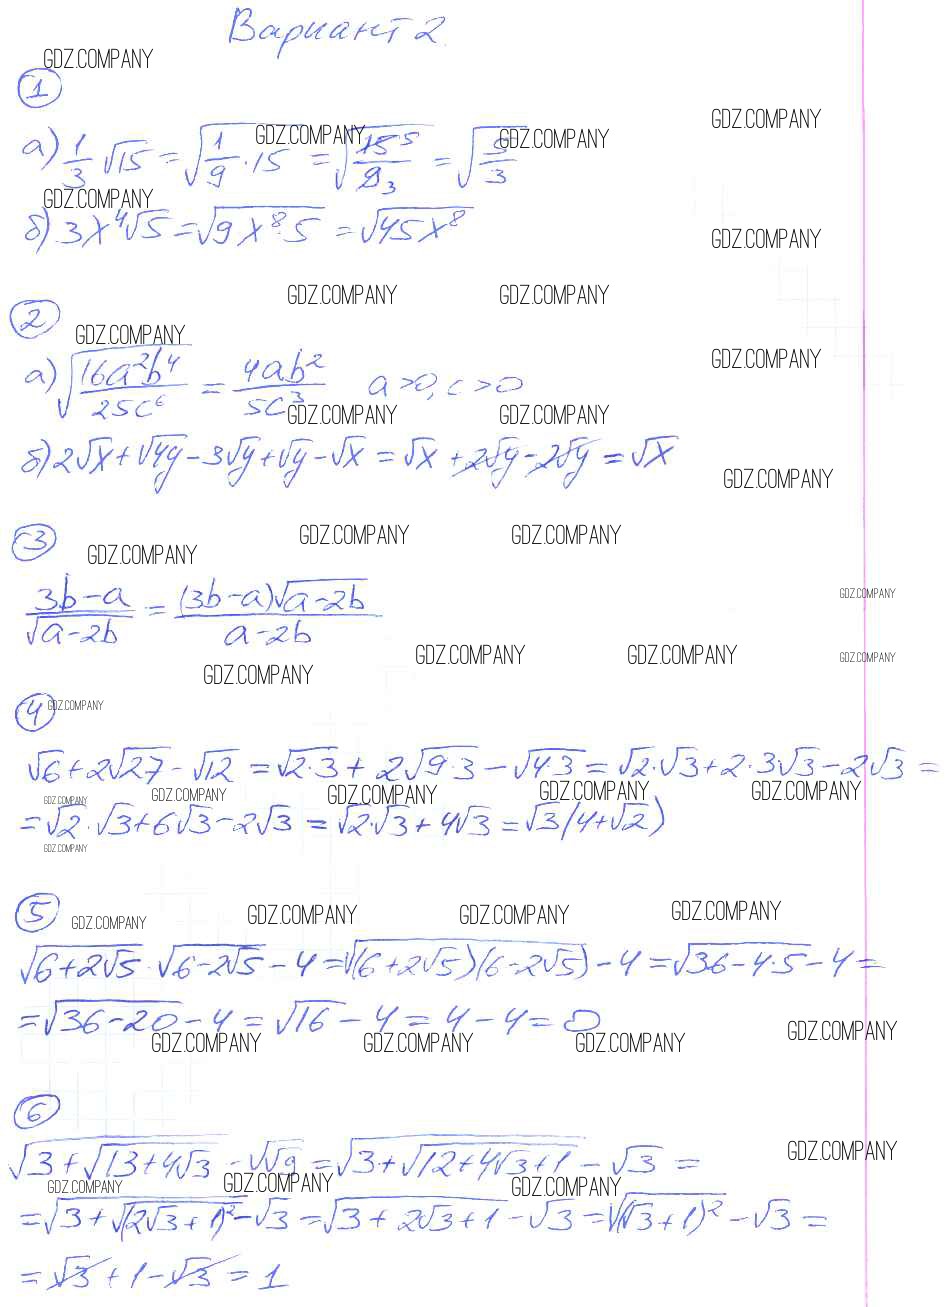 Вариант 2.
GDZ.COMPANY
1
GDZ.COMPANY
а) 1/3 √15 = √(1/9 · 15) = √(15 5/9 3) = √(5/3)
GDZ.COMPANY GDZ.COMPANY
GDZ.COMPANY
б) 3x⁴√5 = √(9x⁸·5) = √(45x⁸)
GDZ.COMPANY
GDZ.COMPANY GDZ.COMPANY
2
GDZ.COMPANY
GDZ.COMPANY
а) √(16a²b⁴/25c⁶) = 4ab²/5c³ a>0, c>0
GDZ.COMPANY GDZ.COMPANY
б) 2√x + √4y - 3√y + √y - √x = √x + 2√y - 2√y = √x
GDZ.COMPANY
3
GDZ.COMPANY GDZ.COMPANY GDZ.COMPANY
(3b-a)/√(a-2b) = (3b-a)√(a-2b)/(a-2b)
GDZ.COMPANY
GDZ.COMPANY GDZ.COMPANY GDZ.COMPANY
GDZ.COMPANY
4
GDZ.COMPANY
√6 + 2√27 - √12 = √(2·3) + 2√(9·3) - √(4·3) = √2·√3 + 2·3√3 - 2√3 =
GDZ.COMPANY GDZ.COMPANY GDZ.COMPANY GDZ.COMPANY GDZ.COMPANY
= √2·√3 + 6√3 - 2√3 = √2·√3 + 4√3 = √3(4+√2)
GDZ.COMPANY
5
GDZ.COMPANY GDZ.COMPANY GDZ.COMPANY GDZ.COMPANY
√(6+2√5) · √(6-2√5) - 4 = √((6+2√5)(6-2√5)) - 4 = √(36-4·5) - 4 =
= √(36-20) - 4 = √16 - 4 = 4 - 4 = 0
GDZ.COMPANY GDZ.COMPANY GDZ.COMPANY GDZ.COMPANY
6
√(3+√(13+4√3)) - √√9 = √(3+√(12+4√3+1)) - √3 =
GDZ.COMPANY
GDZ.COMPANY GDZ.COMPANY GDZ.COMPANY
= √(3+√((2√3+1)²)) - √3 = √(3+2√3+1) - √3 = √((√3+1)²) - √3 =
= √3 + 1 - √3 = 1